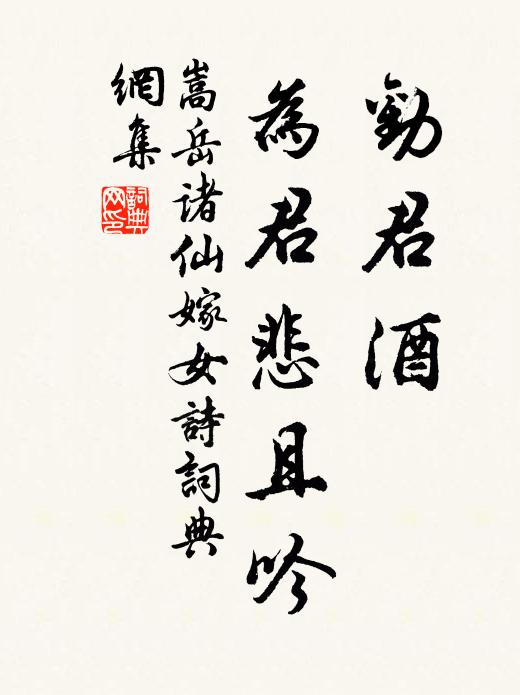 勸君酒
為君悲且吟
嵩岳諸仙嫁女詩詞典
網集
詞典
网印